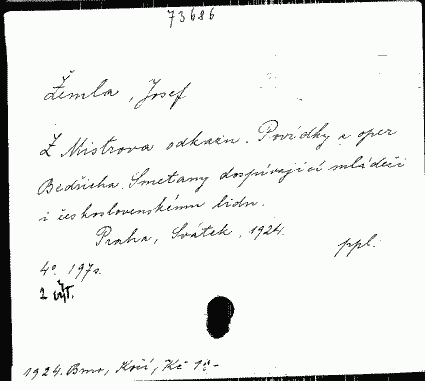 73686
Žemla, Josef
Z Mistrova odkazu. Povídky z oper
Bedřicha Smetany dospívající mládeži
i československému lidu.
Praha, Svátek, 1924.
ppl.
4º. 197 s.
2 výt.
1924. Brno, Kočí, Kč